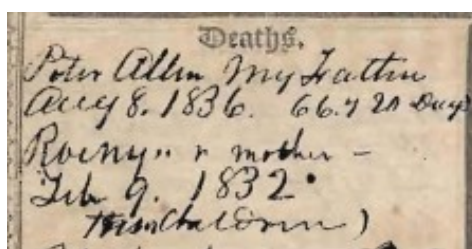 Deaths.
Peter Allen My Father
Aug 8. 1836. 66.y 20 Days
Roeny " " mother –
Feb 9. 1832.